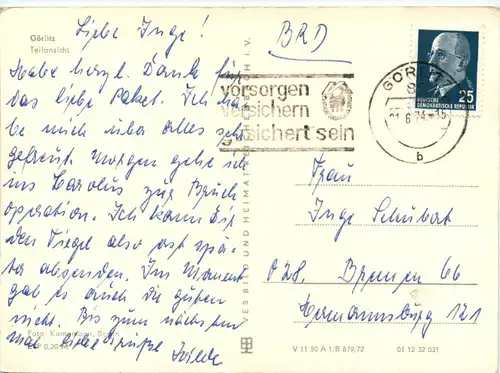 Görlitz
Teilansicht
Liebe Inge!
Habe herzl. Dank für
das liebe Paket. Ich ha-
be mich über alles sehr
gefreut. Morgen gehe ich
ins Carolus zur Bruch-
operation. Ich kann Dir
den Tiegel also erst spä-
ter absenden. Im Moment
gab es auch die guten
nicht. Bis zum nächsten
mal liebe Grüße
Foto: Kampmann,
EVP 0,20
VEB BILD UND HEIMAT REICHENBACH I. V.
BRD
vorsorgen
versichern
gesichert sein
GÖRLITZ
.6.74
b
25
DEUTSCHE
DEMOKRATISCHE REPUBLIK
Frau
Inge Schubert
028. Bremen 66
Hermannsburg 121
V 11 50 A 1/B 879/72
01 12 32 031